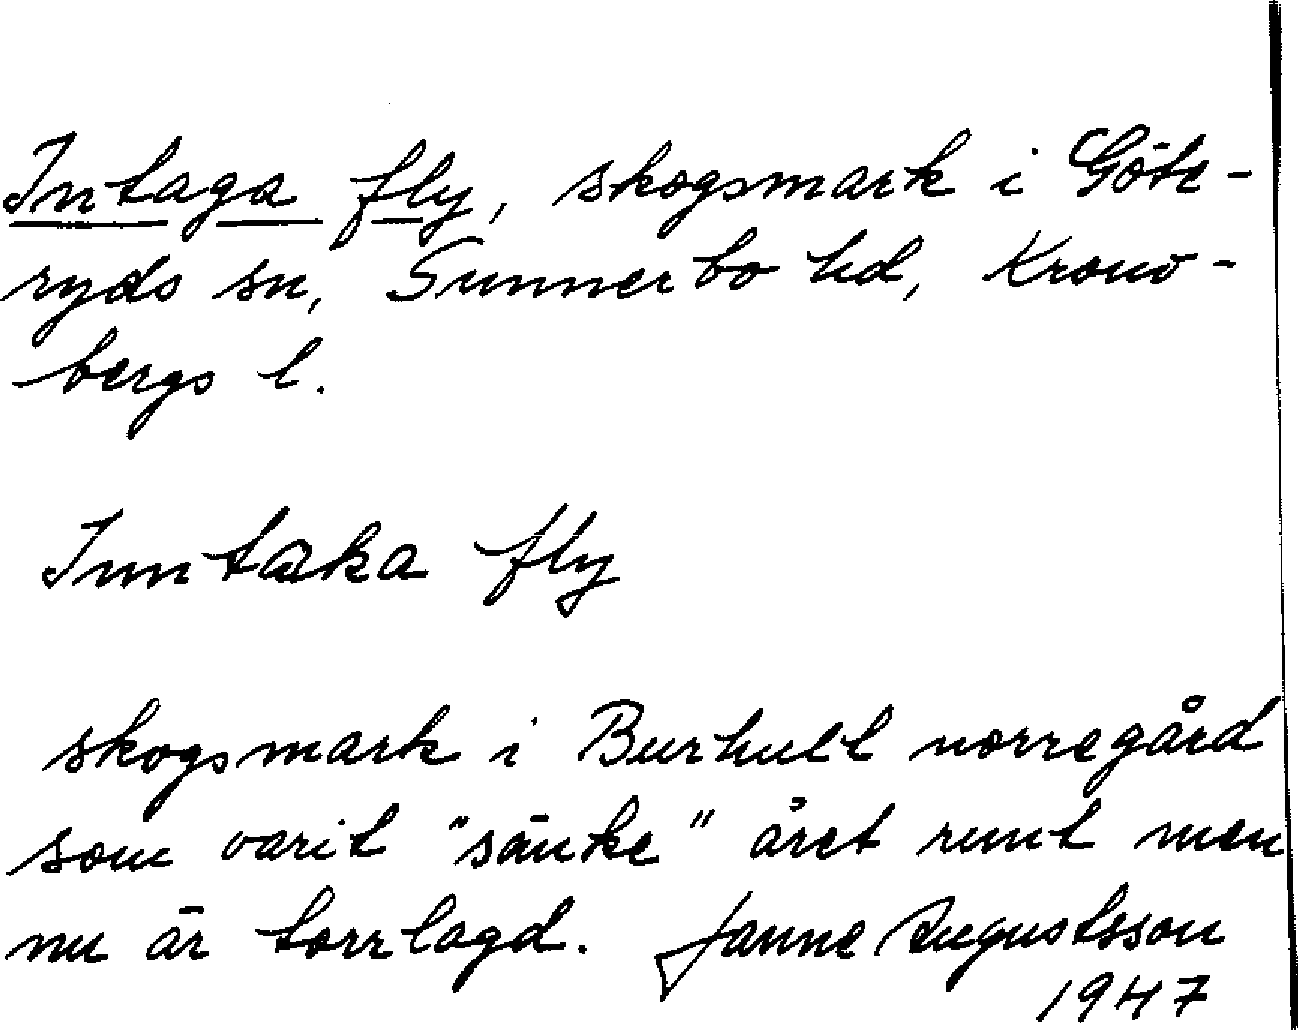 Intaga fly, skogsmark i Göte-
ryds sn, Sunnerbo hd, Krono-
bergs l.
Inntaka fly
skogsmark i Burhult norregård
som varit "sänke" året runt men
nu är torrlagd. Janne Augustsson
1947